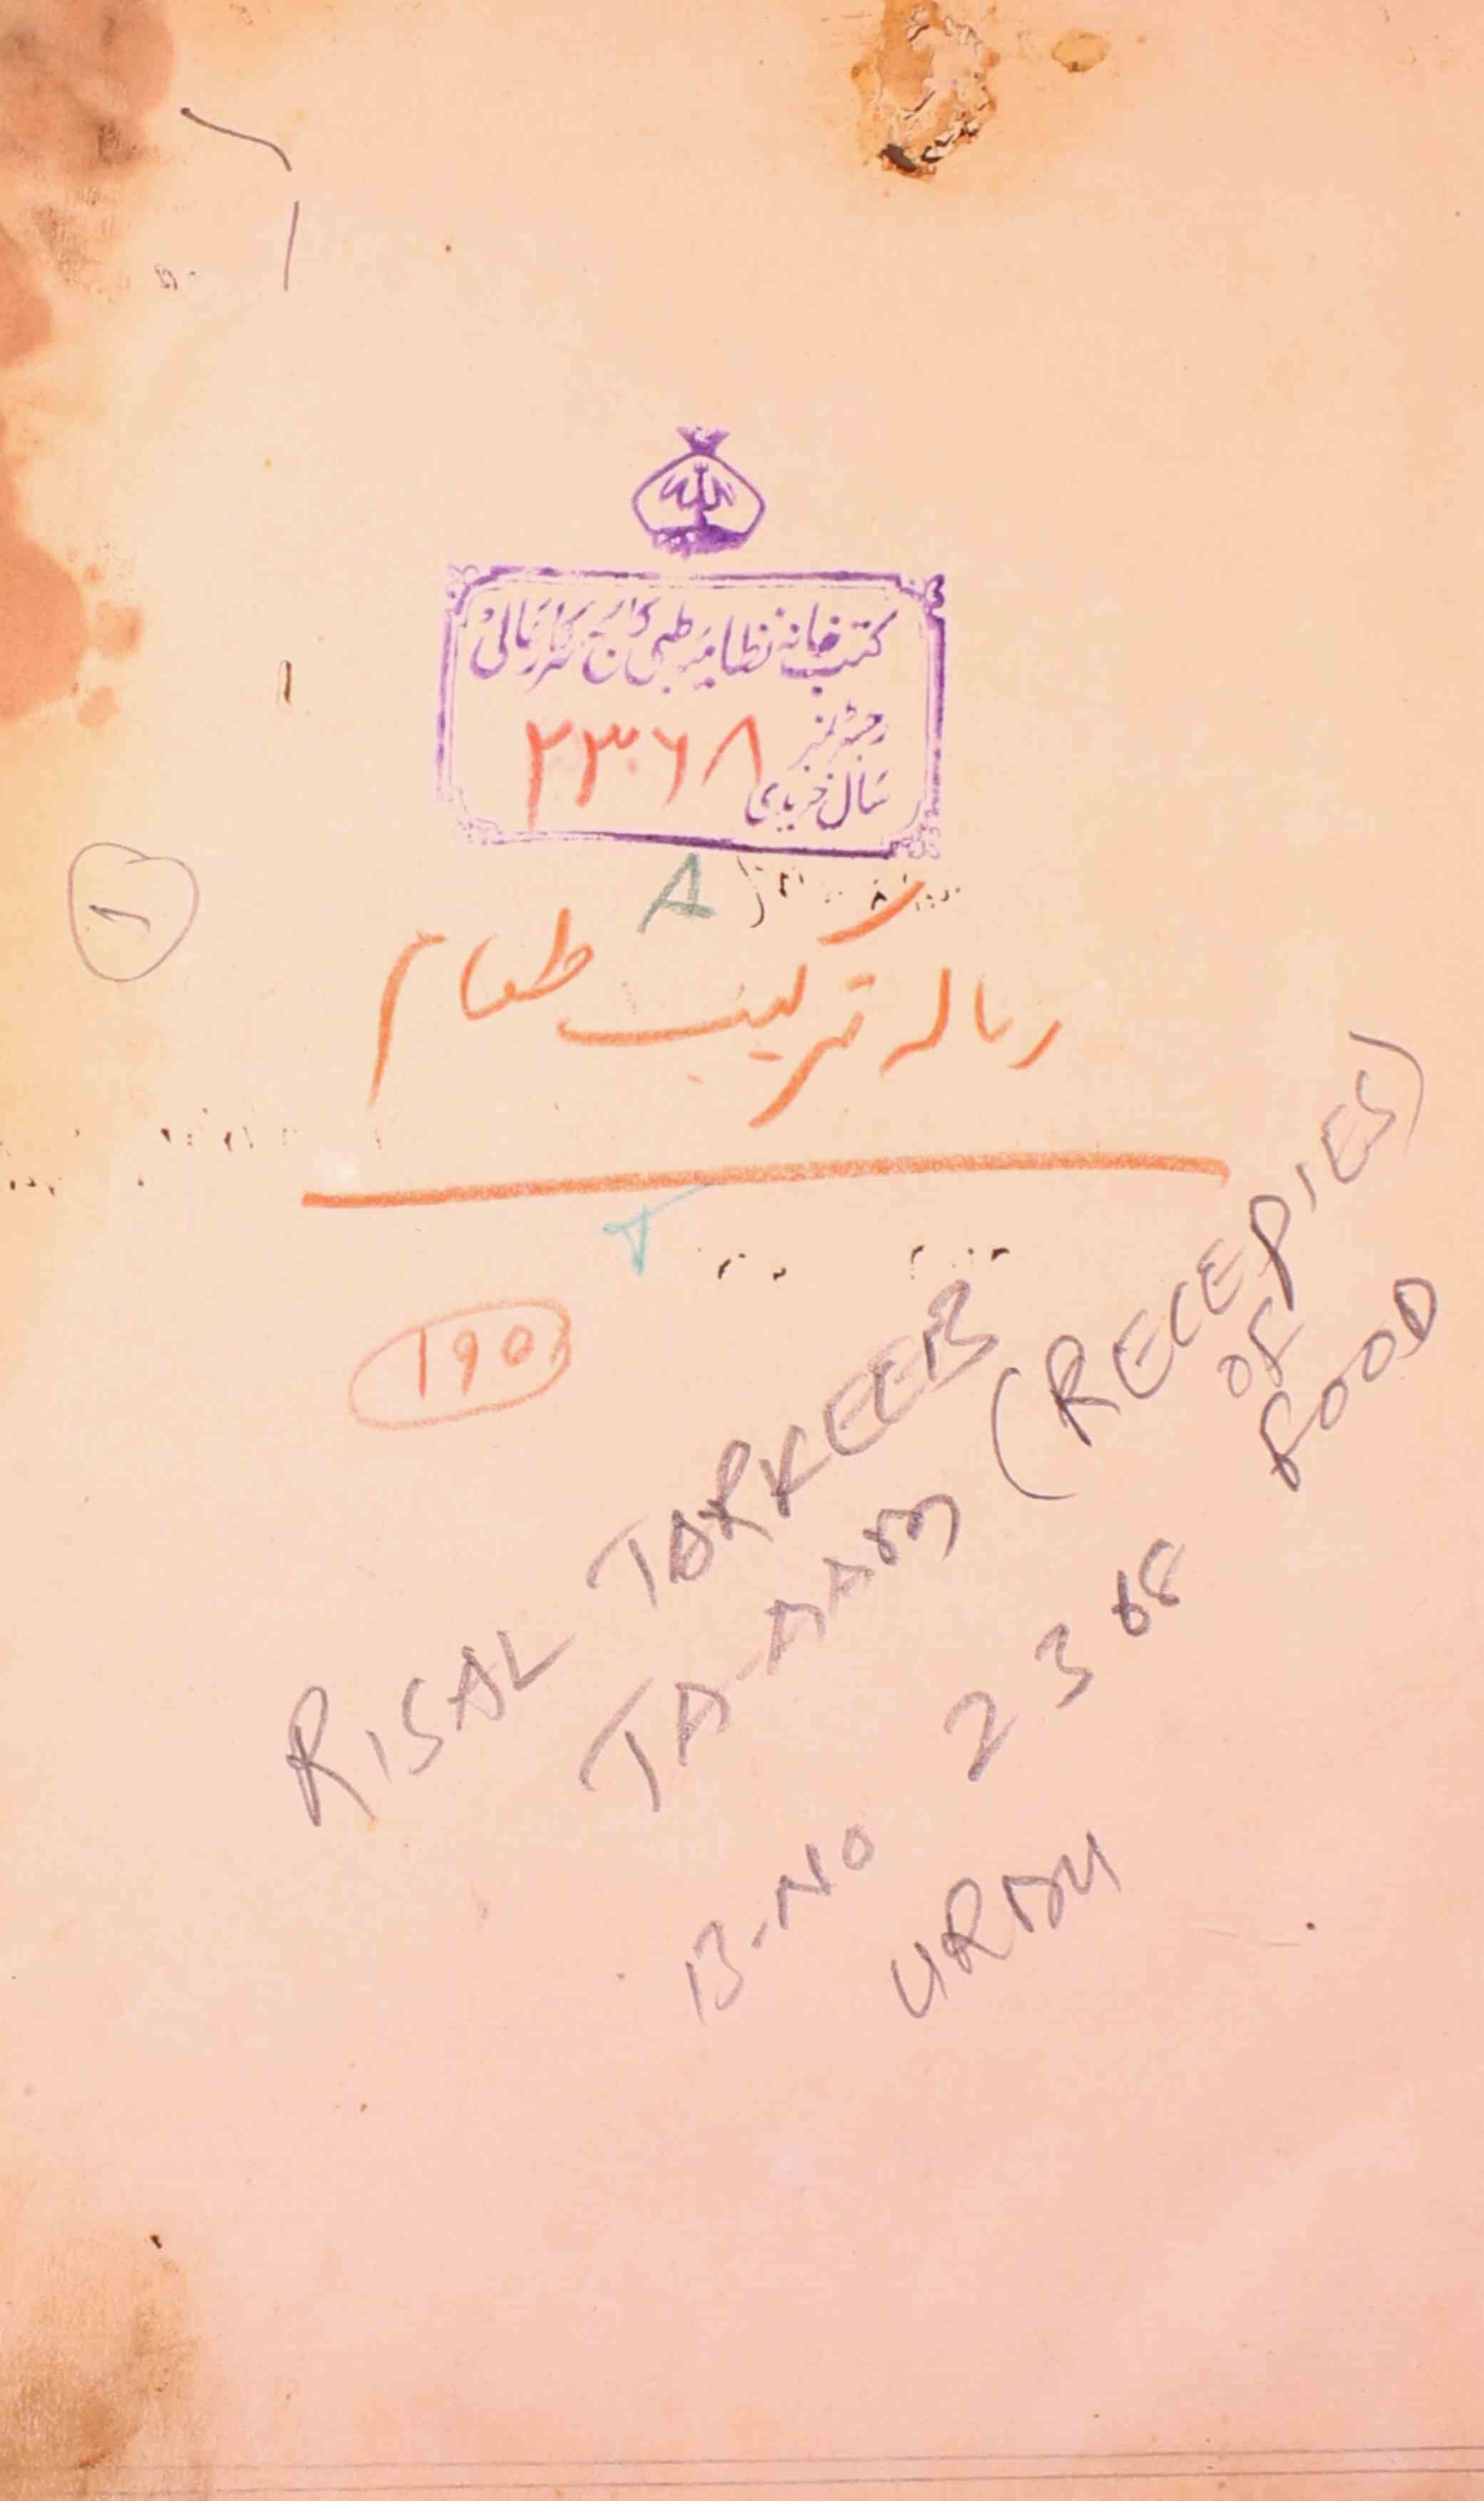 الله
کتب خانہ نظامیہ طبی کالج سرکار عالی
رجسٹر نمبر
۲۳۶۸
سال خریدی
A
رسالہ ترکیب طعام
190
RISAL TARKEEB
TA-AAM (RECEPIES
OF
FOOD)
B-NO 2368
URDU